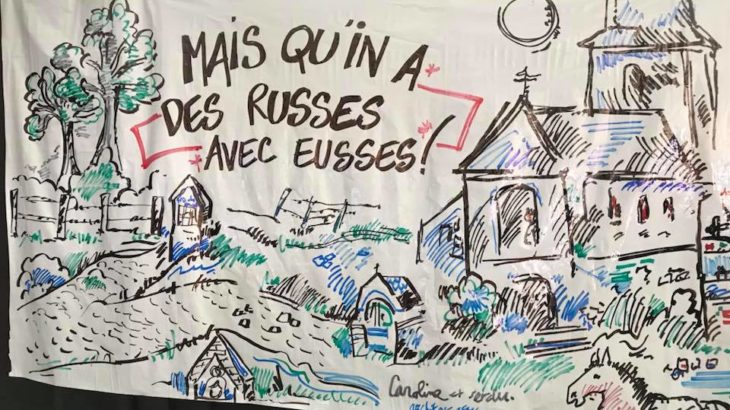 MAIS QU'ÏN A
DES RUSSES
AVEC EUSSES!
Carolina et